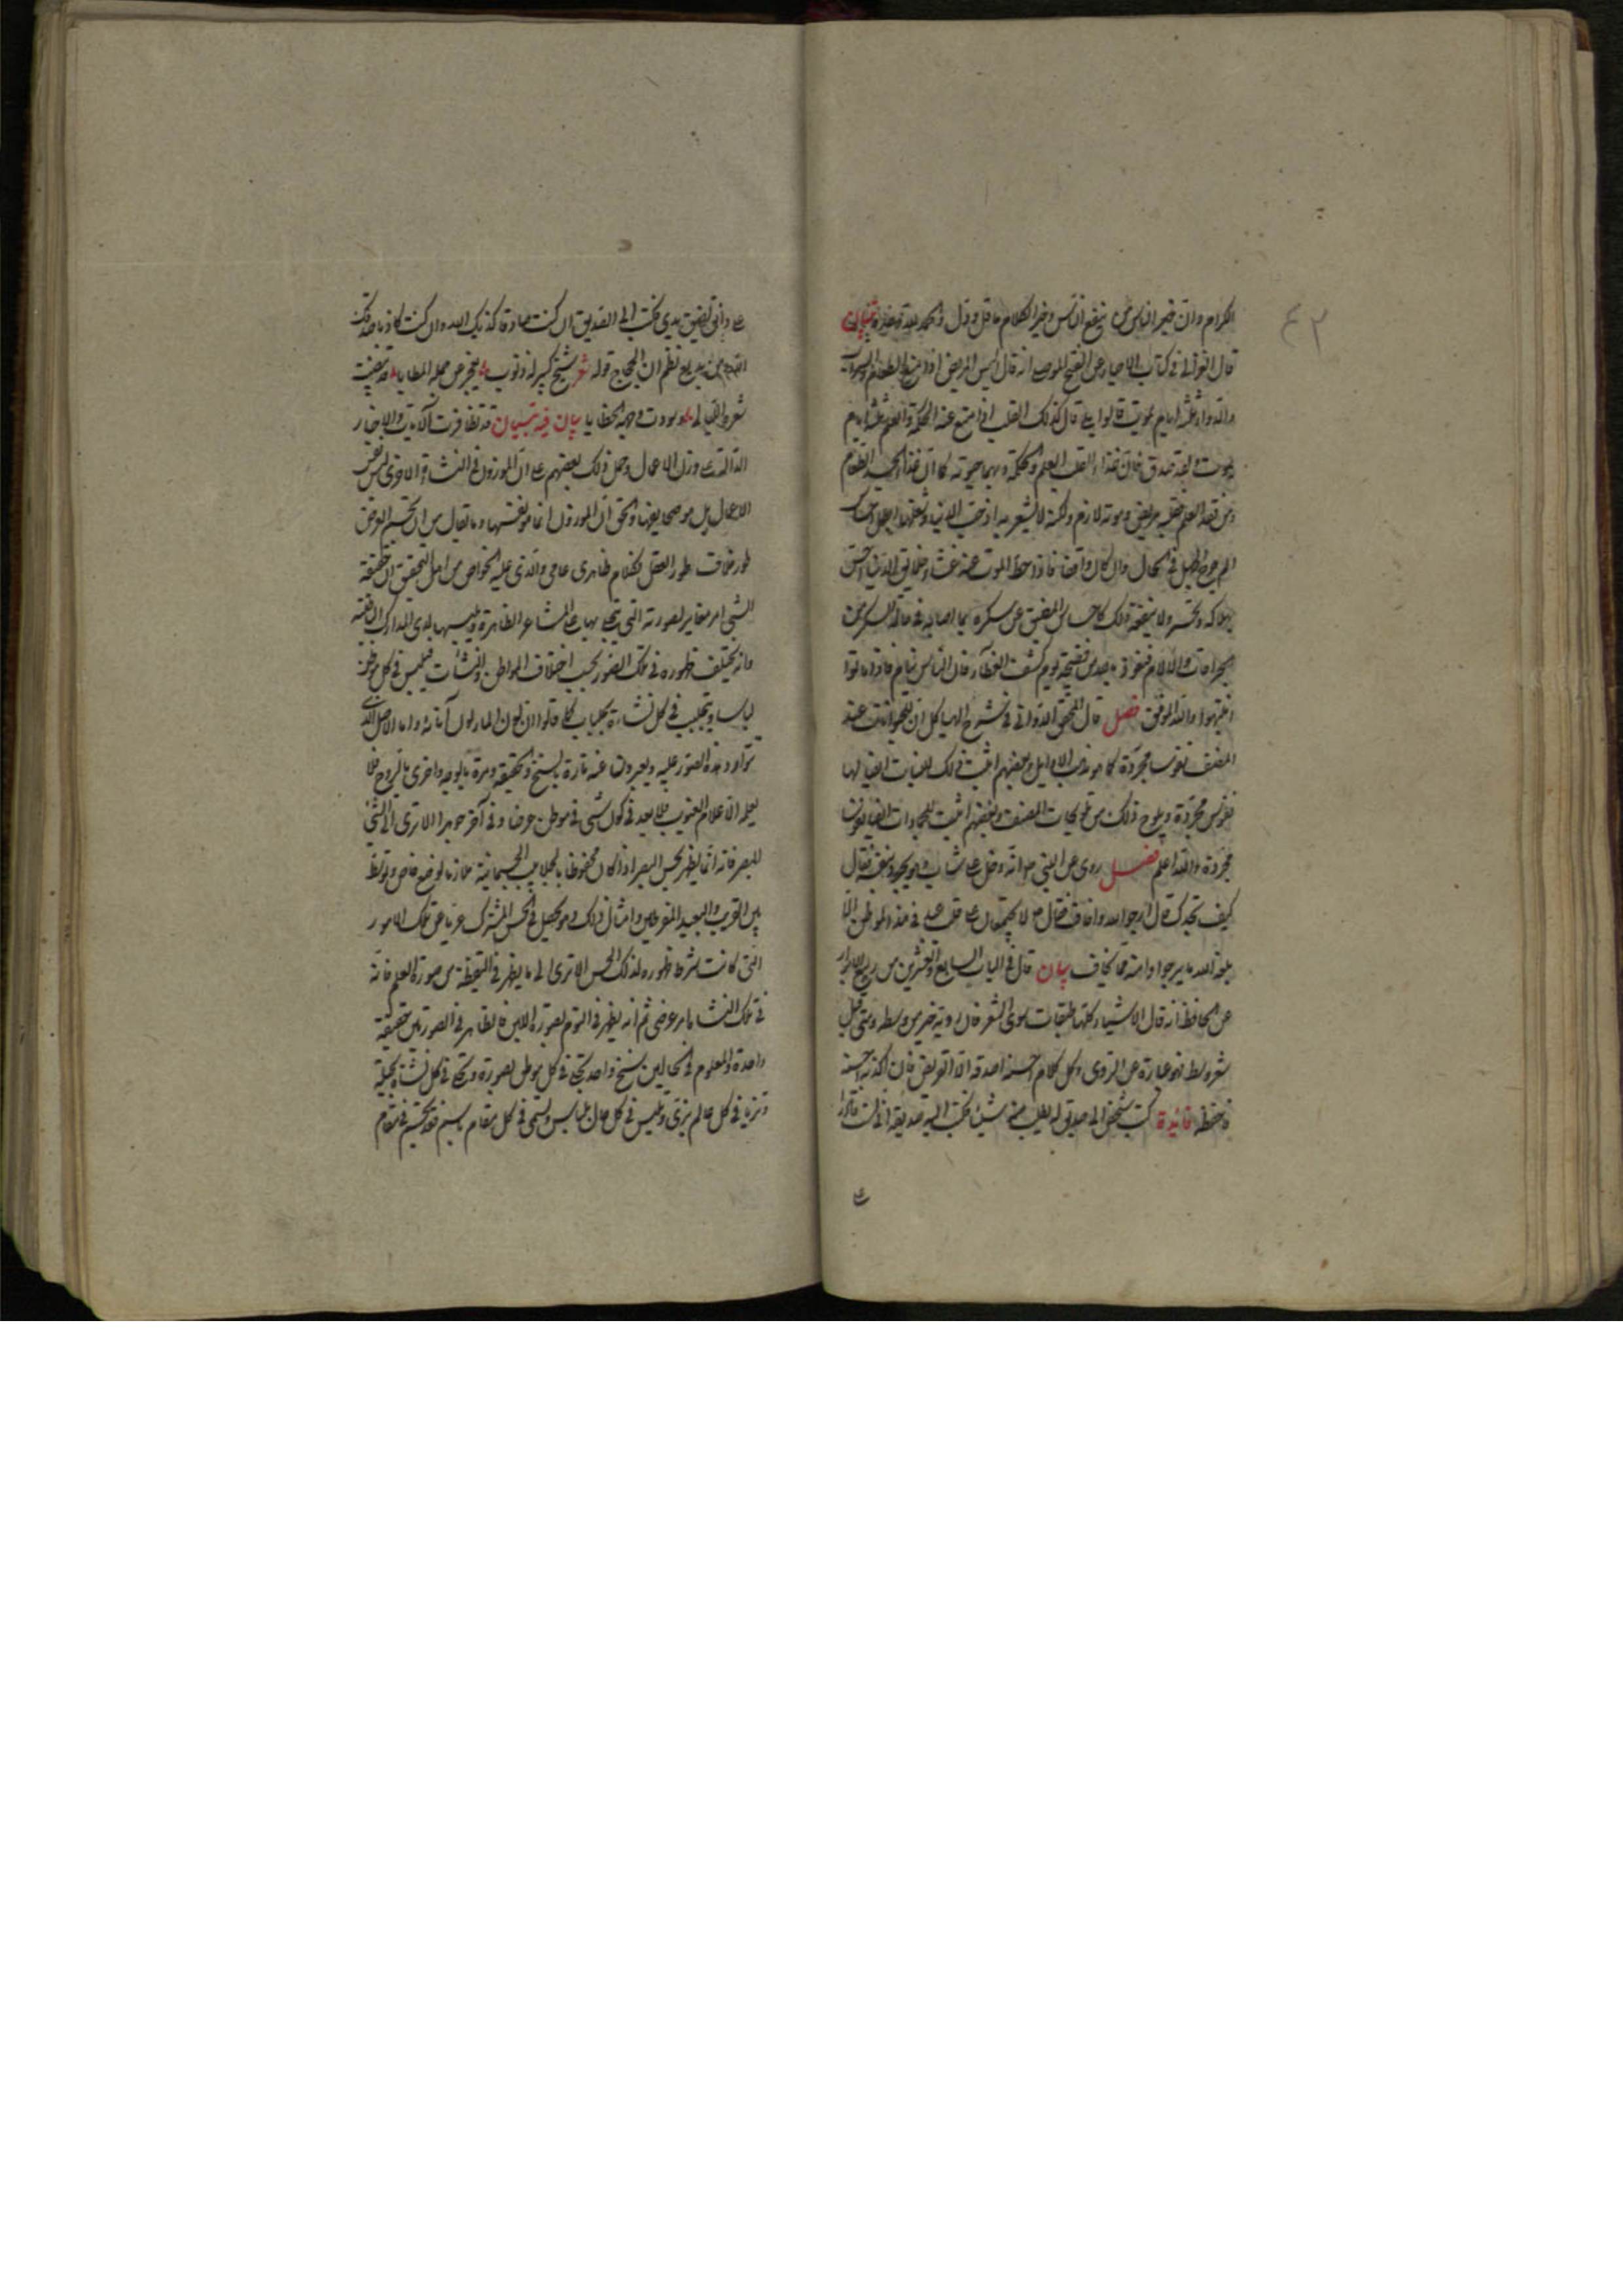 الكرام وان خير الناس من ينفع الناس وخير الكلام ما قل ودل والحمد لله تبيان
قال الغزالي في كتاب الاحياء عن الفتح الموصلي انه قال اليس المريض اذا منع الطعام والشراب
والدواء ثلثة ايام يموت قالوا بلى قال كذلك القلب اذا منع عنه الحكمة والعلم ثلثة ايام
يموت ولقد صدق فان غذاء القلب العلم والحكمة وبهما حيوته كما ان غذاء الجسد الطعام
ومن فقد العلم فقلبه مريض وموته لازم ولكنه لا يشعر به اذ حب الدنيا وشغله بها ابطل احساسه
في الحال وان كان واقعا فاذا حط الموت عنه اعباء الدنيا احس
بهلاكه وتحسر ولا ينفعه ذلك كاحساس المفيق عن سكره بما اصابه في حالة السكر من
الجراحات والآلام فنعوذ بالله من فضيحة يوم كشف الغطاء فان الناس نيام فاذا ماتوا
انتبهوا والله الموفق فصل قال المحقق الدواني في شرح الهياكل ان للحيوانات عند
المصنف نفوسا مجردة كما هو مذهب الاوايل وبعضهم اثبت في ذلك للنبات ايضا لها
نفوس مجردة ويلوح ذلك من تلويحات المصنف وبعضهم اثبت للجمادات ايضا نفوسا
مجردة والله اعلم فصل روى عن النبي ص انه دخل على شاب وهو يجود بنفسه فقال
كيف تجدك قال ارجو الله واخاف فقال ص لا يجتمعان على قلب عبد في هذه المواطن الا
بلغه الله ما يرجوا وامنه مما يخاف بيان قال في الباب السابع والعشرين من ربيع الابرار
عن الجاحظ انه قال الاشياء كلها طبقات سوى الشعر فان رديه خير من وسطه ومتى قيل
شعر وسط فهو عبارة عن الردى وكل كلام احسنه اصدقه الا القريض فان اكذبه احسنه
فاحفظه فائدة كتب شخص الى صديق له يطلب منه شيئا فكتب اليه صديقه اني لست قادرا
على
على دانق لضيق يدي فكتب الى الصديق ان كنت صادقا كذبك الله وان كنت كاذبا صدقك
الله من بديع نظم ابن الحجاج قوله شعر شيخ كبير له ذنوب تعجز عن حمله المطايا قد بيضت
شعره الليالي وسودت وجهه الخطايا بيان فيه تبيان قد تظافرت الآيات والاخبار
الدالة على وزن الاعمال وحمل ذلك بعضهم على ان الموزون في النشاة الاخرى ليس نفس
الاعمال بل هو صحايفها والحق ان الموزون انما هو نفسها وما يقال من ان تجسم العرض
طور خلاف طور العقل فكلام ظاهري عامي والذي عليه الخواص من اهل التحقيق ان حقيقة
الشي امر مغاير لصورته التي يتجلى بها على المشاعر الظاهرة ويلبسها لدى المدارك الباطنة
وانه يختلف ظهوره في تلك الصور بحسب اختلاف المواطن والنشآت فيلبس في كل موطن
لباسا ويتجلبب في كل نشاءة بجلباب كما قالوا ان لون الماء لون انائه واما الاصل الذي
توارد هذه الصور عليه ويعبرون عنه تارة بالسنخ والحقيقة ومرة بالوجه واخرى بالروح فلا
يعلمه الا علام الغيوب فلا بعد في كون شي في موطن عرضا وفي آخر جوهرا الا ترى الى الشي
المبصر فانه انما يظهر لحس البصر اذا كان محفوفا بالجلابيب الجسمانية ملازما لوضع خاص وتوسط
بين القرب والبعد المفرطين وامثال ذلك وهو يحصل في الحس المشترك عريا عن تلك الامور
التي كانت شرط ظهوره لذلك الحس الا ترى الى ما يظهر في اليقظة من صورة العلم فانه
في تلك النشاءة امر عرضي ثم انه يظهر في النوم بصورة اللبن فالظاهر في الصورتين حقيقة
واحدة والمعلوم في الحالين سنخ واحد تجلى في كل موطن بصورة وتحلى في كل نشاة بحلية
وتزيا في كل عالم بزي ولبس في كل حال لباس وتسمى في كل مقام باسم فقد تجسم في مقام
٤٢